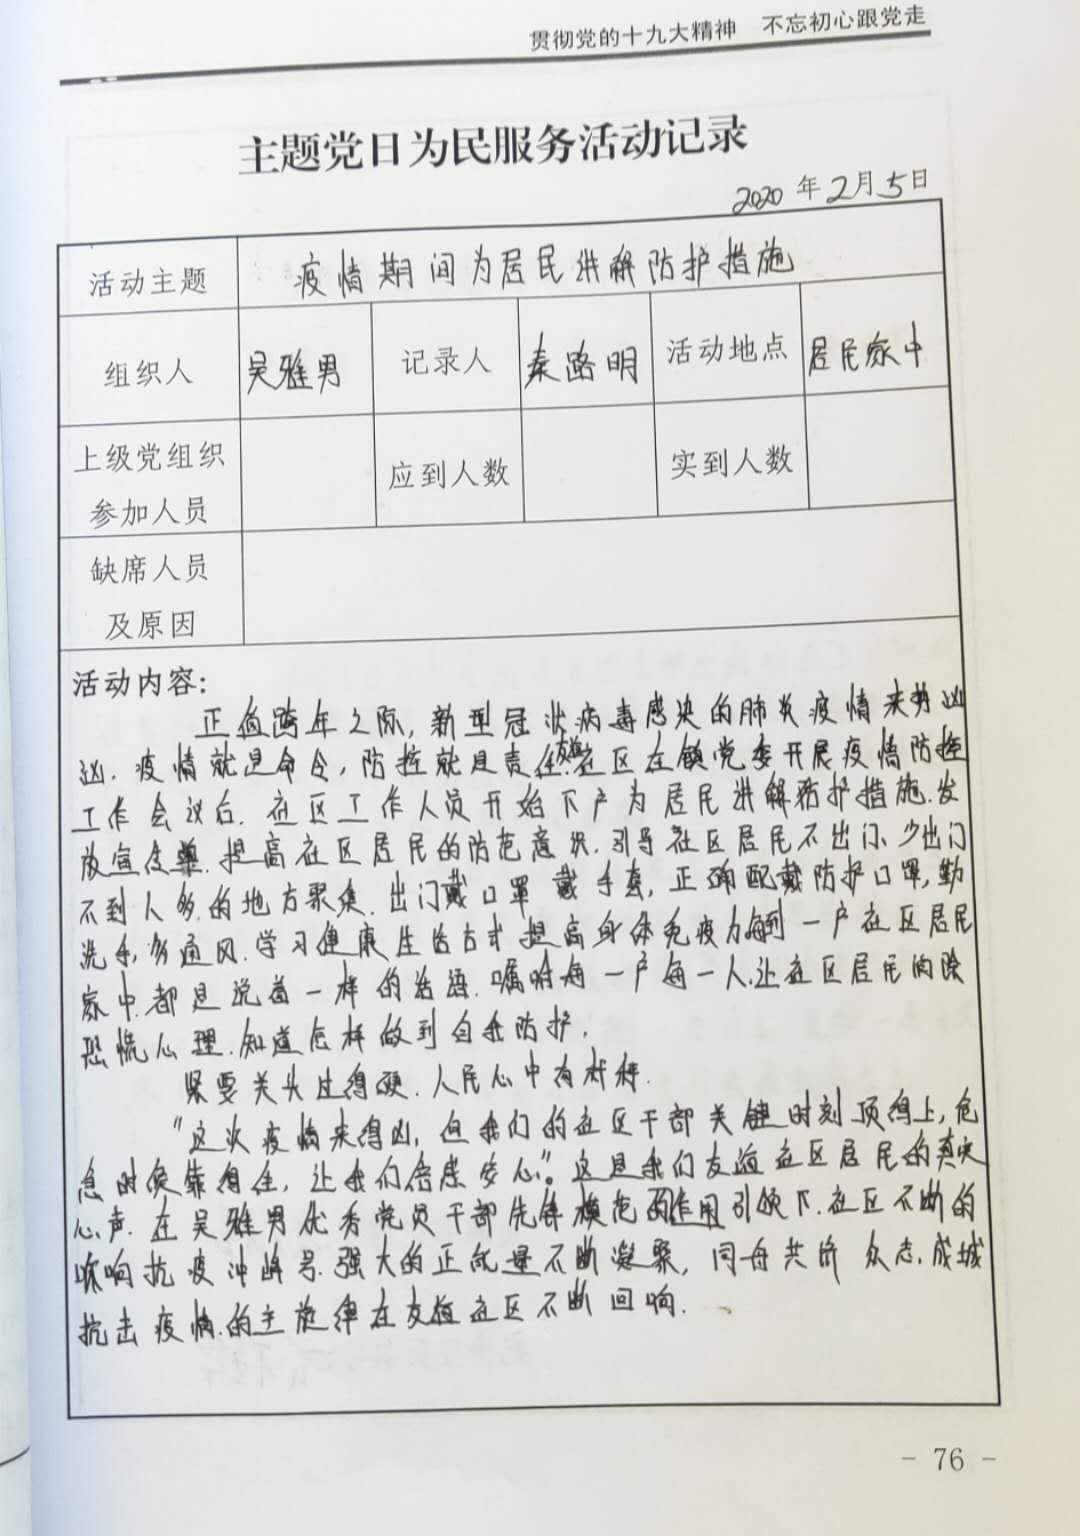 贯彻党的十九大精神 不忘初心跟党走
主题党日为民服务活动记录
2020 年 2 月 5 日
活动主题 疫情期间为居民讲解防护措施
组织人 吴雅男 记录人 秦路明 活动地点 居民家中
上级党组织参加人员 应到人数 实到人数
缺席人员及原因
活动内容:
正值跨年之际, 新型冠状病毒感染的肺炎疫情来势汹
汹. 疫情就是命令, 防控就是责任. 友谊社区在镇党委开展疫情防控
工作会议后. 社区工作人员开始下户为居民讲解防护措施. 发
放宣传单. 提高社区居民的防范意识. 引导社区居民不出门、少出门
不到人多的地方聚集. 出门戴口罩 戴手套, 正确配戴防护口罩, 勤
洗手, 多通风. 学习健康生活方式 提高身体免疫力. 每到一户社区居民
家中. 都是说着一样的话语. 嘱咐每一户每一人. 让社区居民消除
恐慌心理. 知道怎样做到自我防护.
紧要关头过得硬. 人民心中有杆秤.
“这次疫情来得凶, 但我们的社区干部关键时刻顶得上, 危
急时候靠得住, 让我们倍感安心”。这是我们友谊社区居民的真实
心声. 在吴雅男优秀党员干部先锋模范的作用引领下. 社区不断的
吹响抗疫冲锋号. 强大的正能量不断凝聚, 同舟共济 众志成城
抗击疫情的主旋律在友谊社区不断回响.
- 76 -